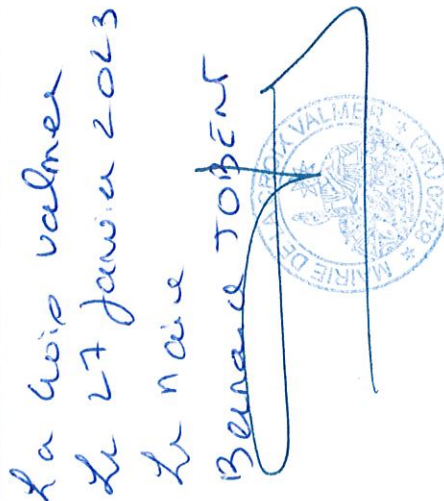 La Croix Valmer
Le 27 Janvier 2023
Le Maire
Bernard JOBERT
MAIRIE DE LA CROIX VALMER * (VAR) 83420 *